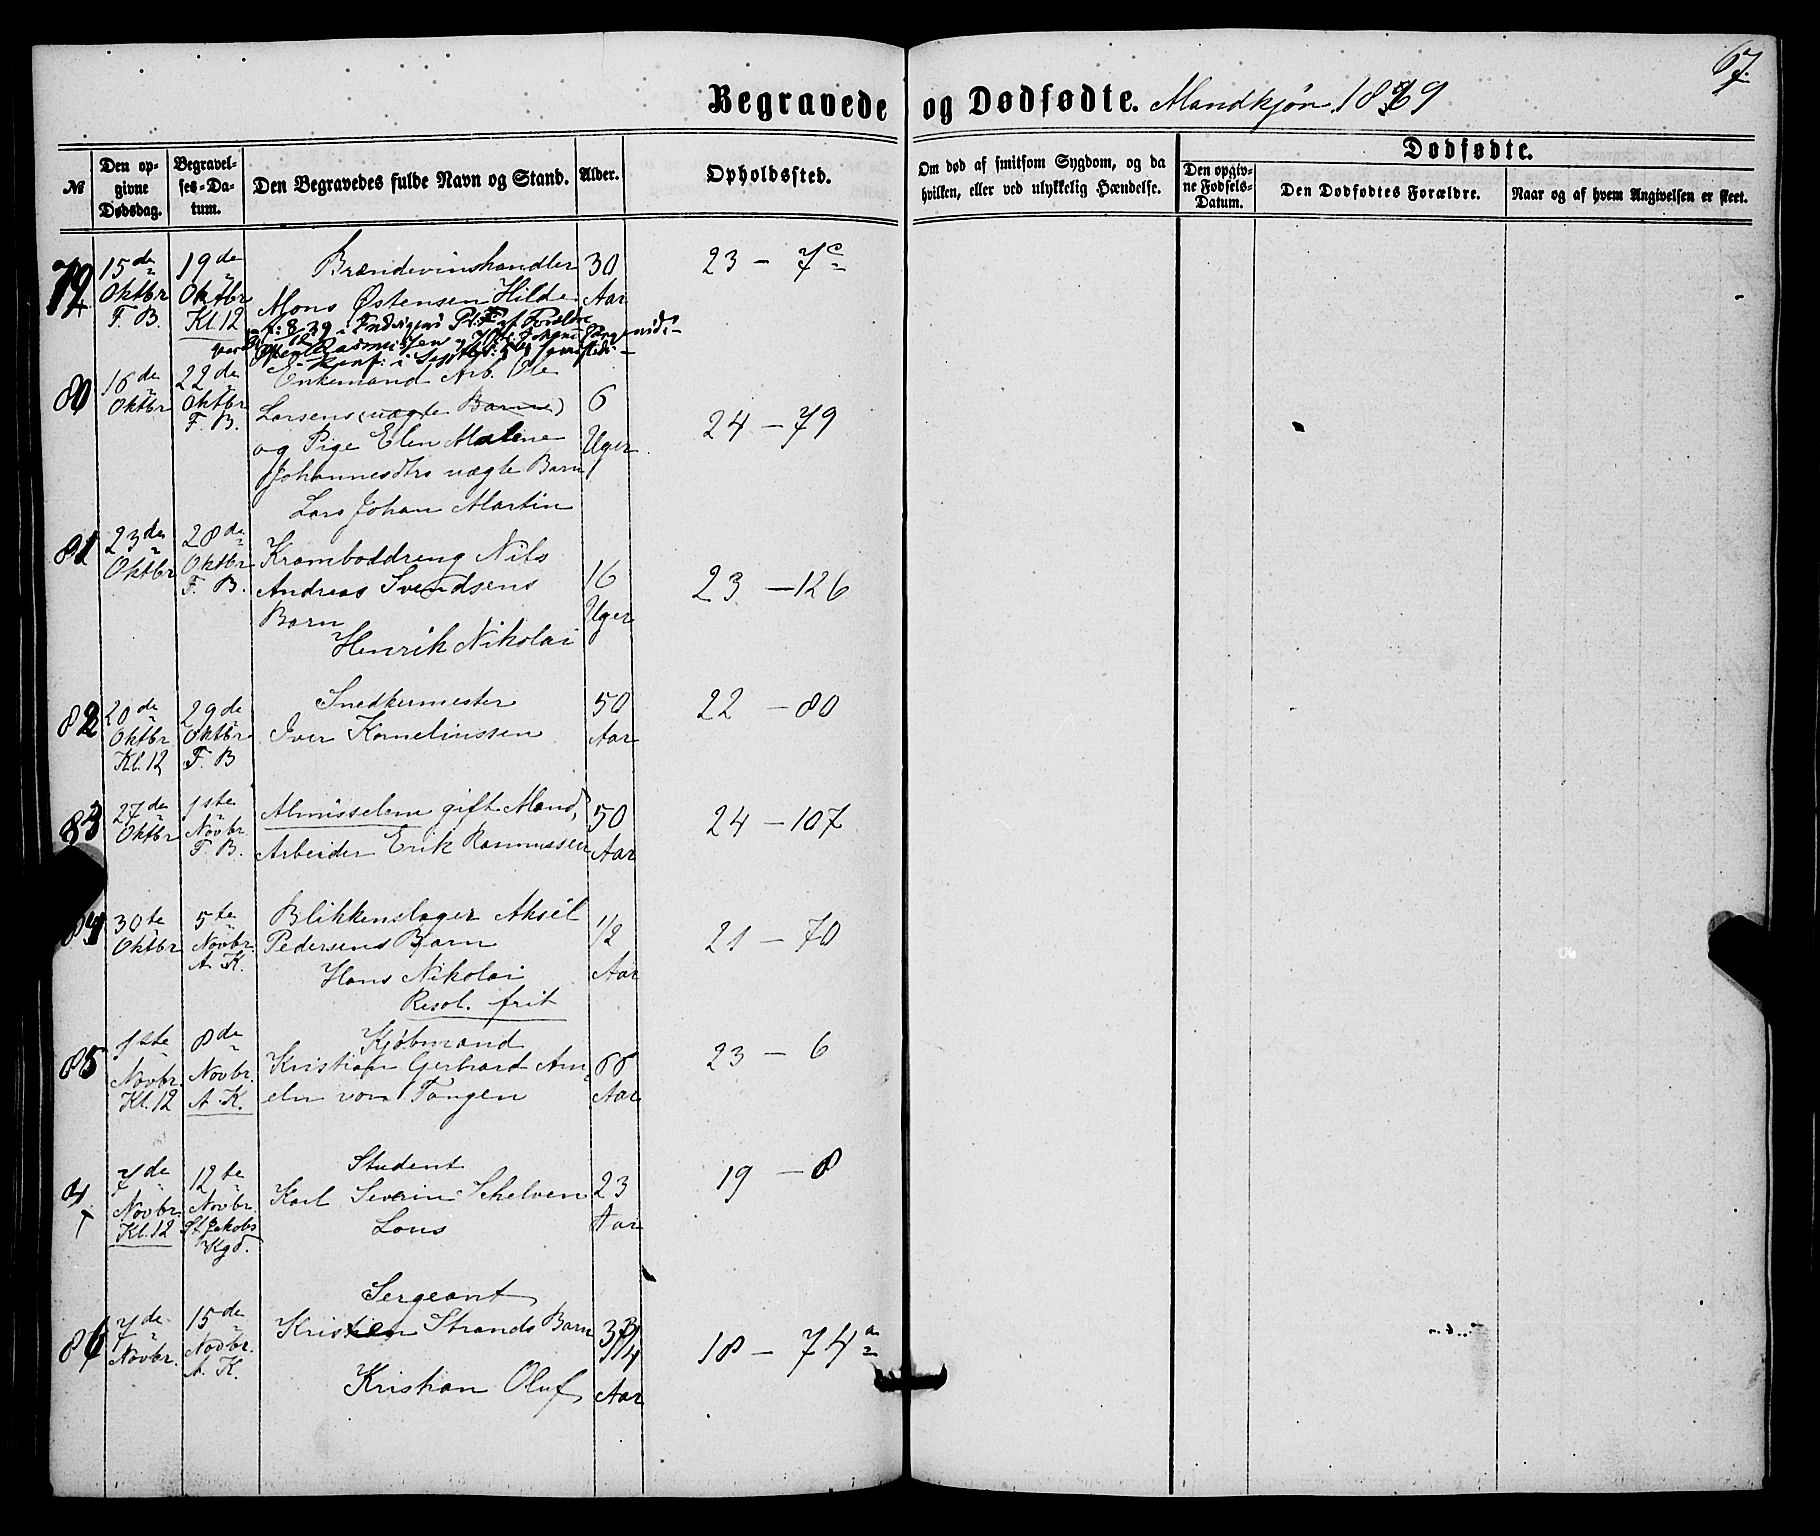 67.
Begravede og Dødfødte. Mandkjøn 1869
№
Den opgivne Dødsdag.
Begravelses-Datum.
Den Begravedes fulde Navn og Stand.
Alder.
Opholdssted.
Om død af smitsom Sygdom, og da hvilken, eller ved ulykkelig Hændelse.
Dødfødte.
Den opgivne Fødsels-Datum.
Den Dødfødtes Forældre.
Naar og af hvem Angivelsen er skeet.
79 15de Oktbr F. B.
19de Oktbr Kl. 12
Brændevinshandler
Mons Østensen Hilde
30 Aar
23 – 7c
80 16de Oktbr
22de Oktbr F. B.
Enkemand Arb. Ole
Larsens (uægte Barn)
og Pige Elen Malene
Johannesdtrs uægte Barn
Lars Johan Martin
6 Uger
24 – 79
81 23de Oktbr
28de Oktbr F. B.
Kramboddreng Nils
Andreas Svendsens
Barn
Henrik Nikolai
16 Uger
23 – 126
82 20de Oktbr Kl. 12
29de Oktbr F. B
Snedkermester
Iver Korneliussen
50 Aar
22 – 80
83 27de Oktbr
1ste Novbr F. B.
Almisselem gift Mand,
Arbeider Erik Rasmussen
50 Aar
24 – 107
84 30te Oktbr
5te Novbr. A. K.
Blikkenslager Aksel
Pedersens Barn
Hans Nikolai
Resol. frit
1/2 Aar
21 – 70
85 1ste Novbr. Kl. 12
8de Novbr. A. K.
Kjøbmand
Kristian Gerhard Am-
eln von Tangen
68 Aar
23 – 6
4 7de Novbr. Kl. 12
12te Novbr. St. Jakobs Kgd.
Student
Karl Severin Schelven
Lous
23 Aar
19 – 8
86 7de Novbr.
15de Novbr. A. K.
Sergeant
Kristen Strands Barn
Kristian Oluf
3 1/4 Aar
18 – 74a